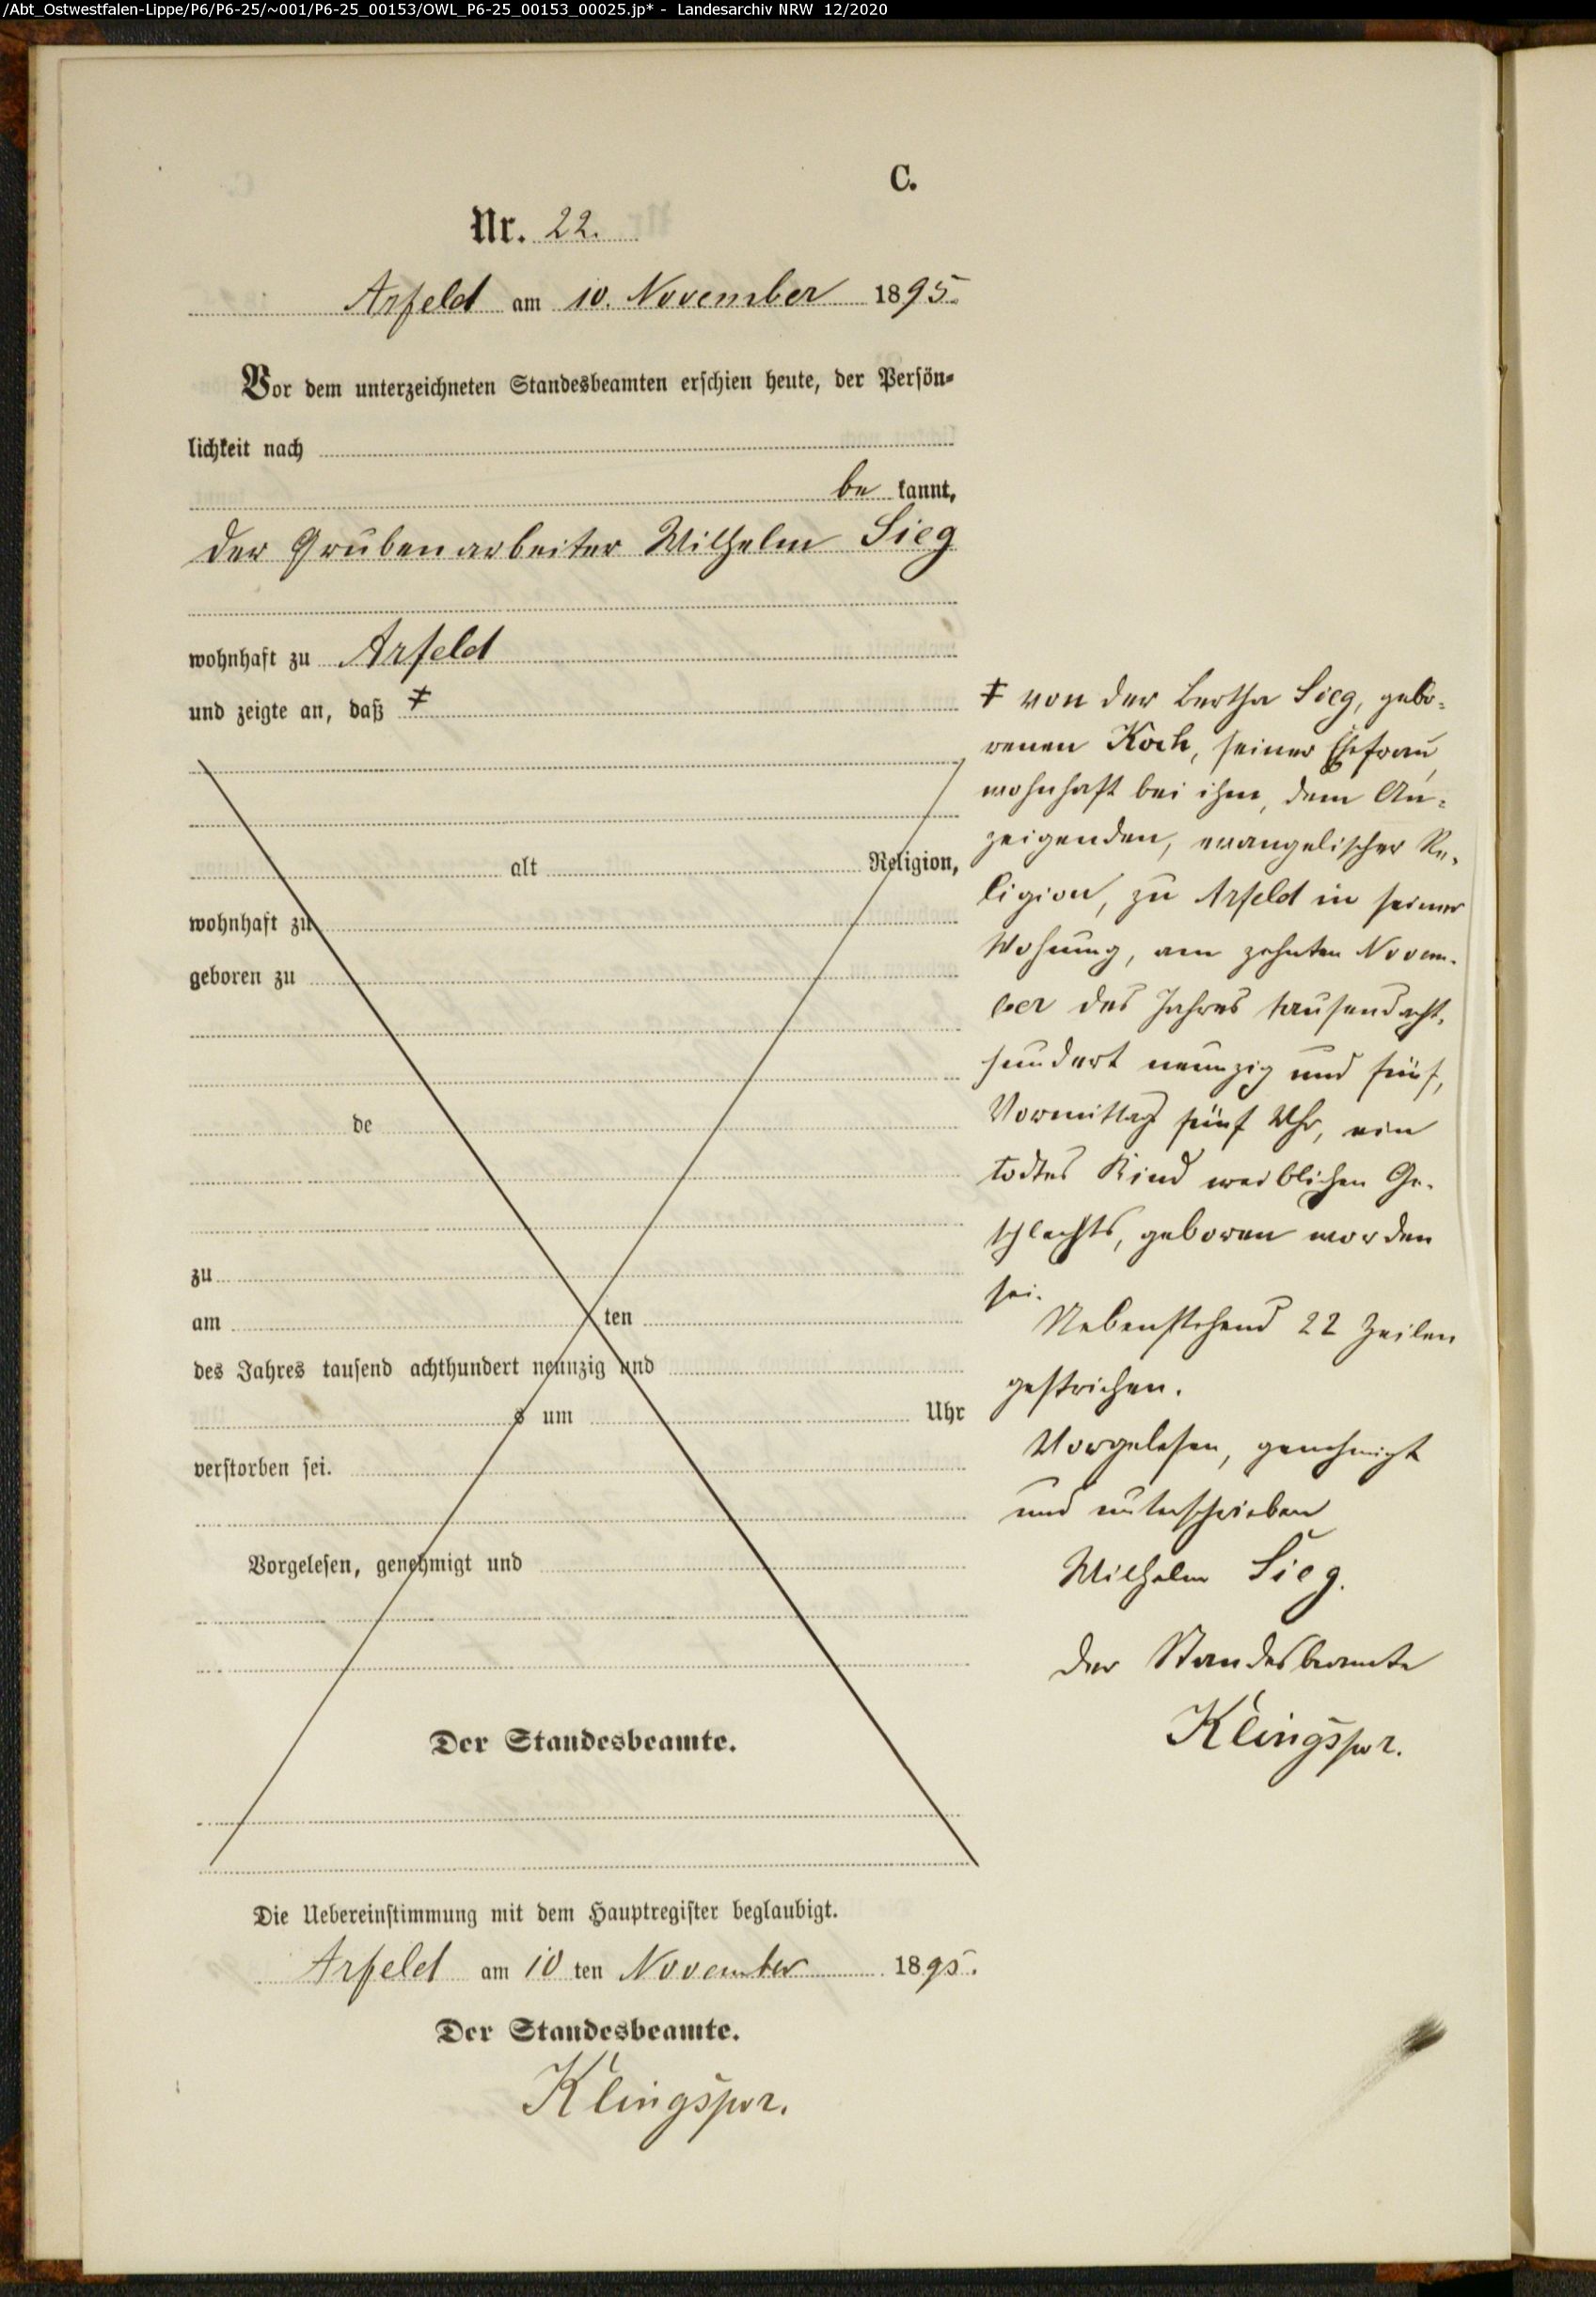 /Abt_Ostwestfalen-Lippe/P6/P6-25/~001/P6-25_00153/OWL_P6-25_00153_00025.jp* - Landesarchiv NRW 12/2020
C.
Nr. 22.
Arfeld am 10. November 1895.
Vor dem unterzeichneten Standesbeamten erschien heute, der Persön-
lichkeit nach
be kannt,
der Grubenarbeiter Wilhelm Sieg
wohnhaft zu Arfeld
und zeigte an, daß ‡
alt Religion,
wohnhaft zu
geboren zu
de
zu
am ten
des Jahres tausend achthundert neunzig und
s um Uhr
verstorben sei.
Vorgelesen, genehmigt und
Der Standesbeamte.
‡ von der Bertha Sieg, gebo-
renen Koch, seiner Ehefrau,
wohnhaft bei ihm, dem An-
zeigenden, evangelischer Re-
ligion, zu Arfeld in seiner
Wohnung, am zehnten Novem-
ber des Jahres tausend acht-
hundert neunzig und fünf,
Vormittags fünf Uhr, ein
todtes Kind weiblichen Ge-
schlechts, geboren worden
sei.
Nebenstehend 22 Zeilen
gestrichen.
Vorgelesen, genehmigt
und unterschrieben
Wilhelm Sieg.
Der Standesbeamte
Klingspor.
Die Uebereinstimmung mit dem Hauptregister beglaubigt.
Arfeld am 10 ten November 1895.
Der Standesbeamte.
Klingspor.